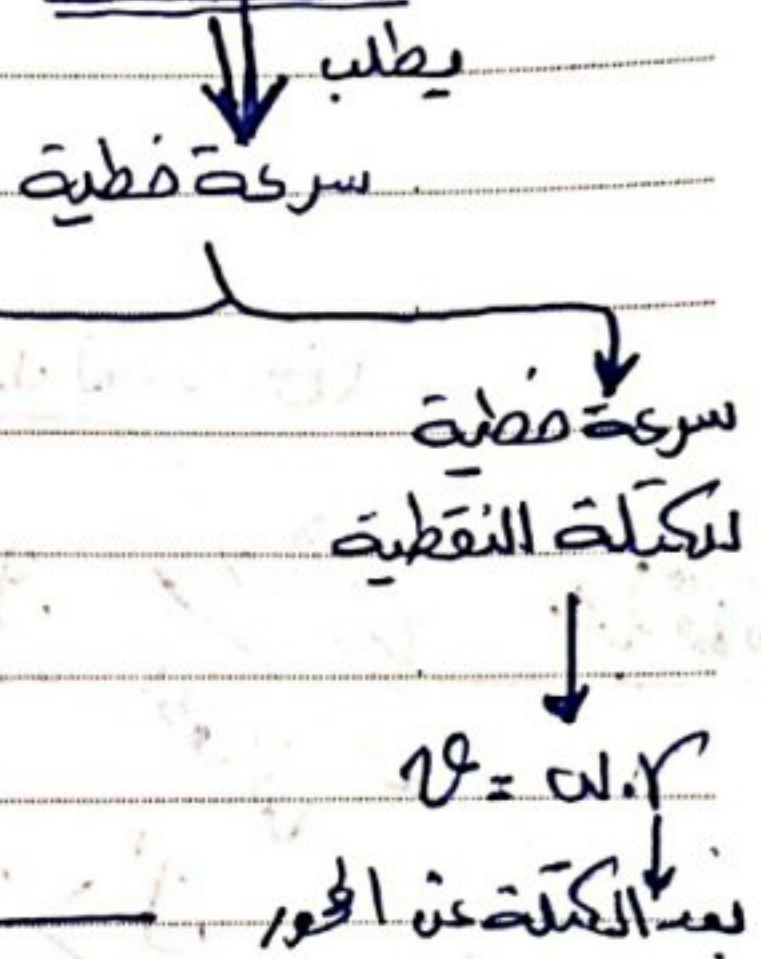 يطلب
سرعة خطية
سرعة خطية
للكتلة النقطية
v = ω.r
بعد الكتلة عن المحور